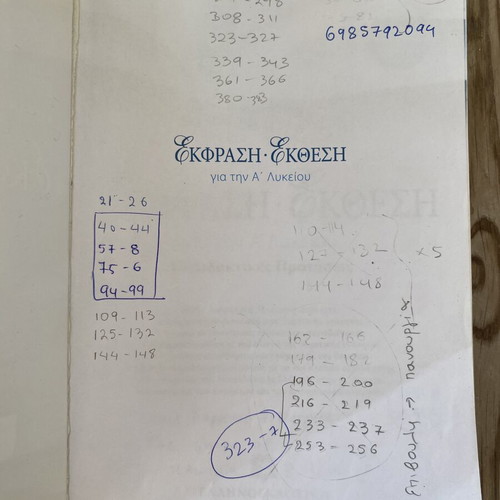 308 - 311
323 - 327
6985792094
339 - 343
361 - 366
380 - 383
ΕΚΦΡΑΣΗ · ΕΚΘΕΣΗ
για την Α΄ Λυκείου
21 - 26
40 - 44
57 - 8
75 - 6
94 - 99
109 - 113
125 - 132
144 - 148
x 5
144 - 148
162 - 166
179 - 182
196 - 200
216 - 219
233 - 237
253 - 256
323 - 7